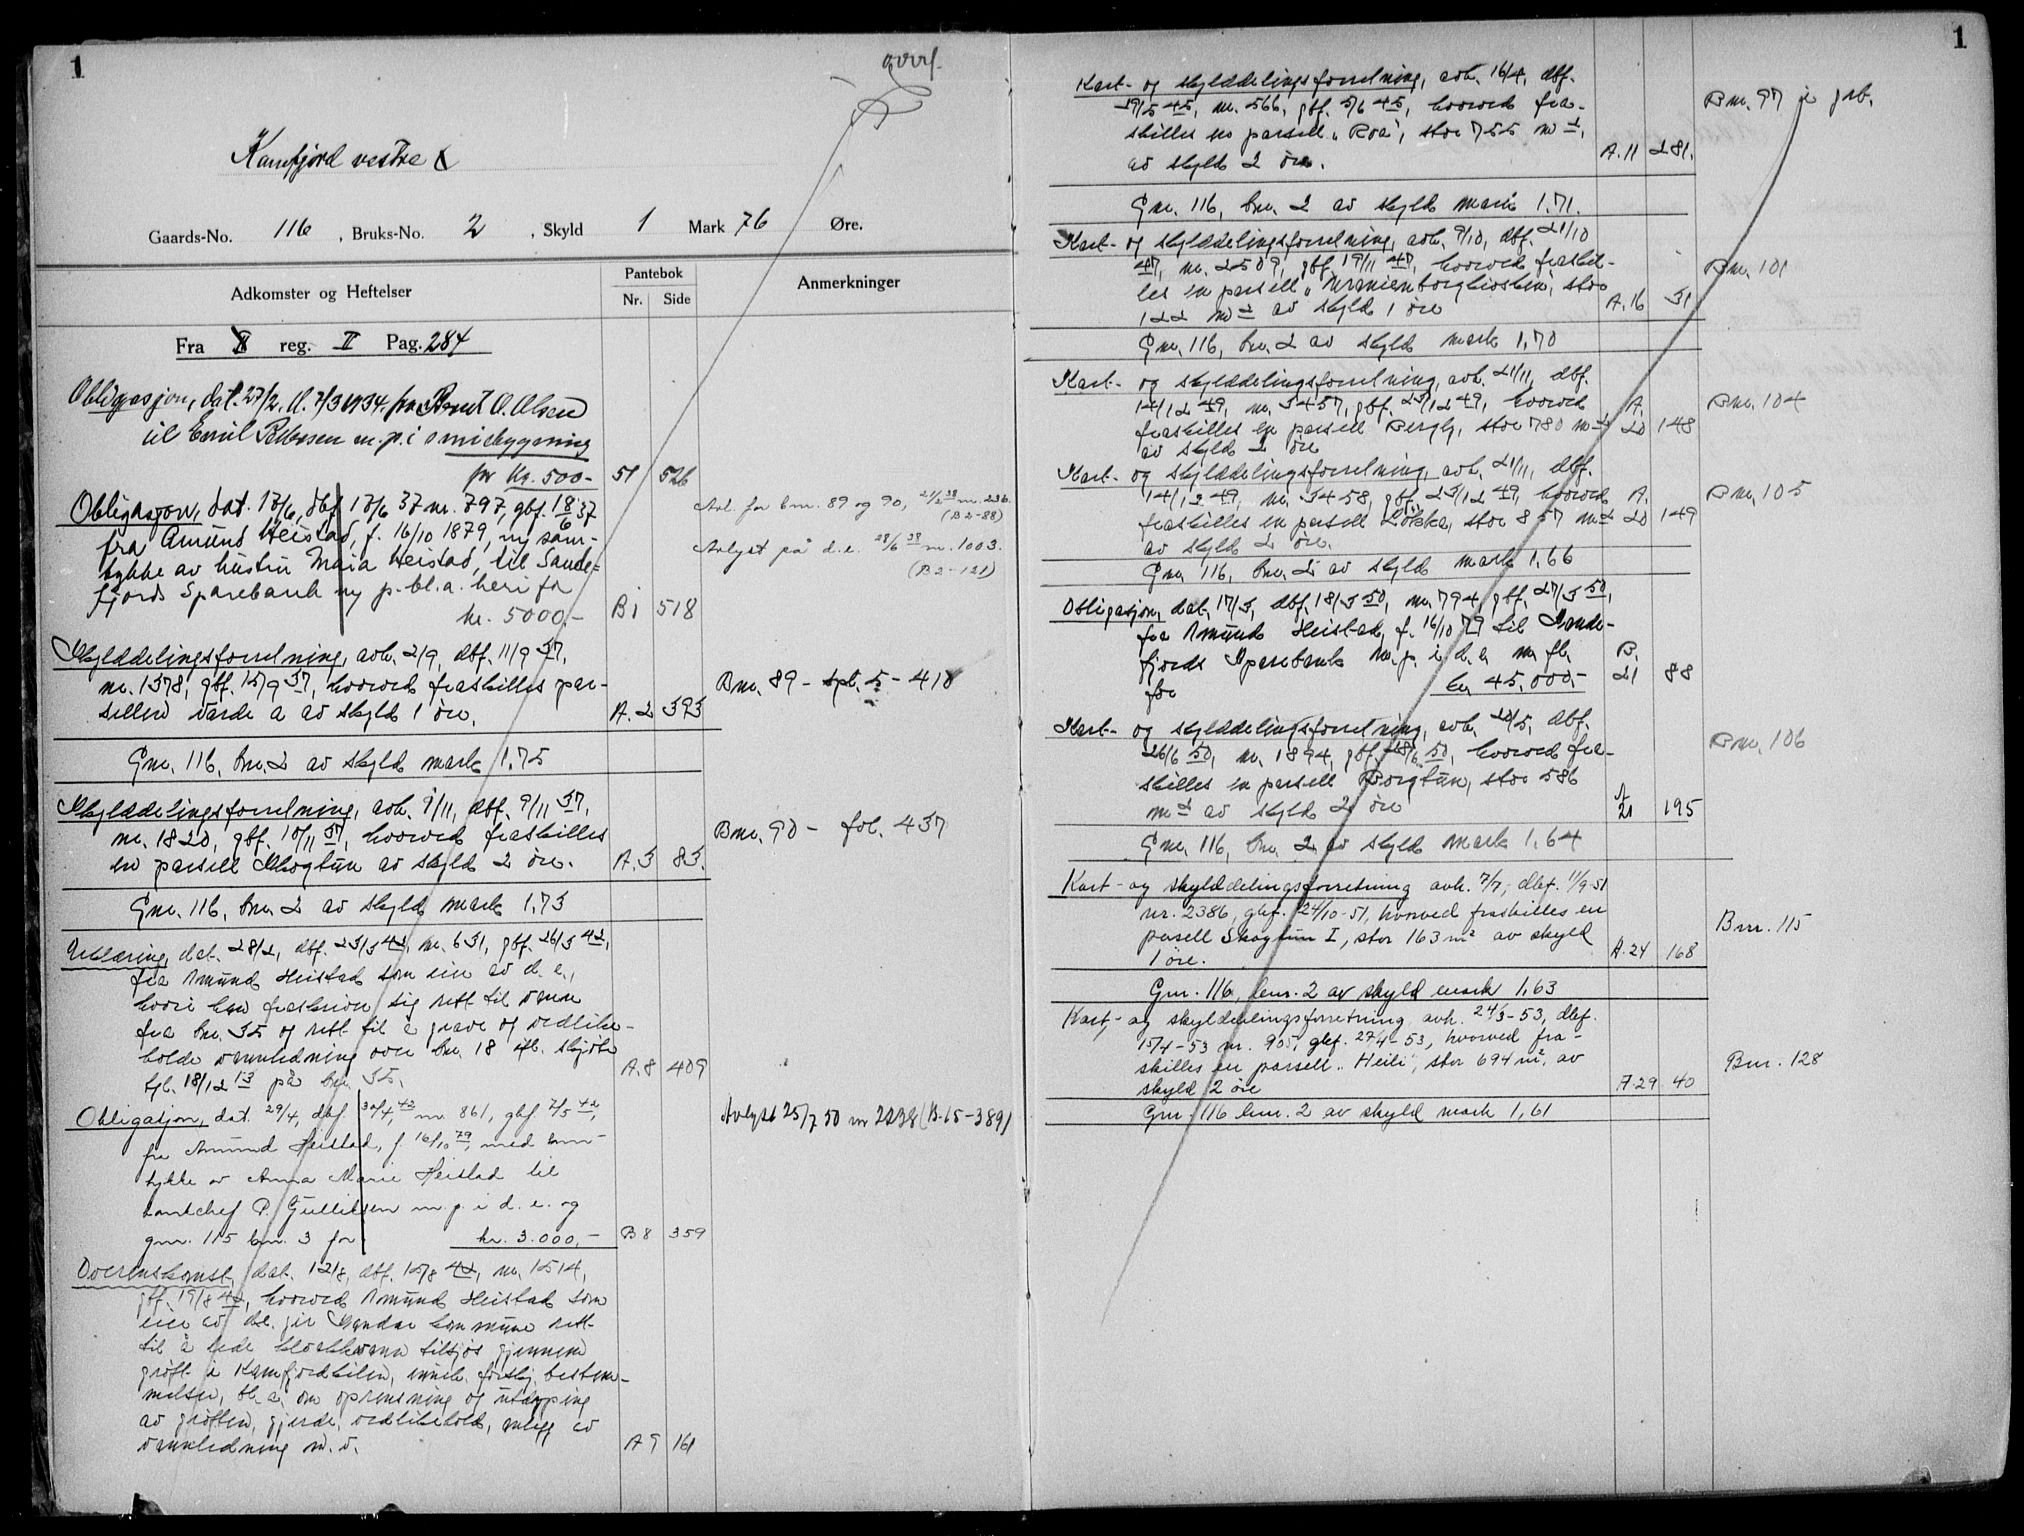 1
overf.
Kamfjord vestre
Gaards-No. 116, Bruks-No. 2, Skyld 1 Mark 76 Øre.
Adkomster og Heftelser
Pantebok
Nr. Side
Anmerkninger
Fra reg. II Pag. 284
Obligasjon, dat. 27/2, tl. 7/3 1934 fra Arnt O. Olsen
til Emil m.p. i smiebygning
for Kr. 500.- 51 526
Obligasjon, dat. 17/6, dbf 17/6 37 nr. 797, gbf. 18/6 37
fra Amund Heistad, f. 16/10 1879, m/ sam-
tykke av hustru Maia Heistad, til Sande-
fjords Sparebank m/ p. bl.a. heri for
kr. 5000.- B1 518
Avl. for bnr. 89 og 90, 21/2 38 nr. 236.
(B2-88)
Avlyst på d.e. 28/6 38 nr. 1003.
(B2-121)
Skylddelingsforretning, avh. 2/9, dbf. 11/9 37,
nr. 1378, gbf. 15/9 37, hvorved fraskilles par-
sellen Varde a av skyld 1 øre. A.2 393
Bnr. 89 - spl. 5 - 418
Gnr. 116, bnr. 2 av skyld mark 1,75
Skylddelingsforretning, avh. 9/11, dbf. 9/11 37,
nr. 1820, gbf. 10/11 37, hvorved fraskilles
en parsell Skogtun av skyld 2 øre. A.3 83.
Bnr. 90 - fol. 437
Gnr. 116, bnr. 2 av skyld mark 1,73
Erklæring, dat. 28/2, dbf. 23/3 42, nr. 631, gbf. 26/3 42,
fra Amund Heistad som eier av d.e.,
hvori han fraskriver sig rett til vann
fra bnr. 35 og rett til å grave og vedlike-
holde vannledning over bnr. 18 ifl. skjøte
tgl. 18/12 13 på bnr. 35. A.8 409
Obligasjon, dat. 29/4, dbf. 30/4 42 nr. 861, gbf 7/5 42,
fra Amund Heistad, f. 16/10 79, med sam-
tykke av Anna Marie Heistad til
banksjef P. Gulliksen m.p. i d.e. og
gnr. 115 bnr. 3 for kr. 3.000,- B8 359
Avlyst 25/7 50 nr 2238 (B.15-389)
Overenskomst, dat. 12/8, dbf. 15/8 42, nr. 1514,
gbf. 19/8 42, hvorved Amund Heistad som
eier av d.e. gir Sandar kommune rett
til å lede kloakkvann tilsjøs gjennem
grøft i Kamfjordkilen, inneh. forskj. bestem-
melser, bl.a. om oprensning og utdyping
av grøften, gjerde, vedlikehold, anlegg av
vannledning m.v. A9 161
1
Kart- og skylddelingsforretning, avh. 16/4, dbf.
29/5 45, nr. 566, gbf. 5/6 45, hvorved fra-
skilles en parsell "Roa", stor 755 m2,
av skyld 2 øre. A.11 281.
Bnr. 97 i grb.
Gnr. 116, bnr. 2 av skyld mark 1.71.
Kart- og skylddelingsforretning, avh. 9/10, dbf. 21/10
47, nr. 2509, gbf. 19/11 47, hvorved fraskil-
les en parsell "Uranienborgkiosken", stor
122 m2 av skyld 1 øre A.16 31
Bnr. 101
Gnr. 116, bnr. 2 av skyld mark 1,70
Kart- og skylddelingsforretning, avh. 21/11, dbf.
14/12 49, nr. 3457, gbf. 23/12 49, hvorved
fraskilles en parsell Bergly, stor 780 m2
av skyld 2 øre A. 20 148
Bnr. 104
Kart- og skylddelingsforretning, avh. 21/11, dbf.
14/12 49, nr. 3458, gbf. 23/12 49, hvorved
fraskilles en parsell Løkka, stor 857 m2
av skyld 2 øre. A. 20 149
Bnr. 105
Gnr. 116, bnr. 2 av skyld mark 1,66
Obligasjon, dat. 17/3, dbf. 18/3 50, nr. 794, gbf. 27/3 50,
fra Amund Heistad, f. 16/10 79 til Sande-
fjords Sparebank m.p. i d.e. m. fl.
for kr. 45.000.- B. 21 88
Kart- og skylddelingsforretning, avh. 20/5, dbf.
26/6 50, nr. 1894, gbf. 28/6 50, hvorved fra-
skilles en parsell Borgtun, stor 586
m2 av skyld 2 øre A 21 195
Bnr. 106
Gnr. 116, bnr. 2 av skyld mark 1,64
Kart- og skylddelingsforretning avh. 7/7, dbf. 11/9-51
nr. 2386, gbf. 24/10-51, hvorved fraskilles en
parsell Skogtun I, stor 163 m2 av skyld
1 øre. A.24 168
Bnr. 115
Gnr. 116, bnr. 2 av skyld mark 1,63
Kart- og skylddelingsforretning avh. 24/3-53, dbf.
15/4-53 nr. 905, gbf. 27/4-53, hvorved fra-
skilles en parsell "Heili", stor 694 m2, av
skyld 2 øre A.29 40
Bnr. 128
Gnr. 116 bnr. 2 av skyld mark 1,61